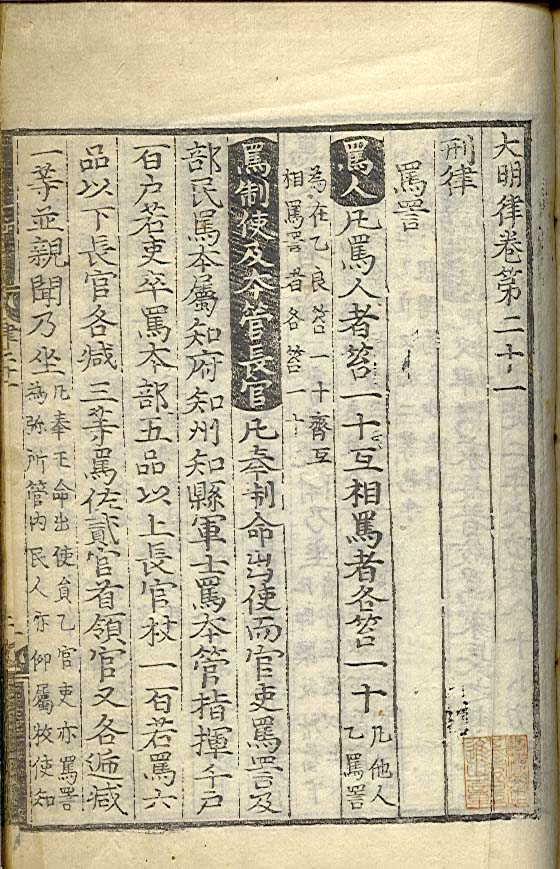 大明律卷第二十一
刑律
罵詈
罵人凡罵人者笞一十互相罵者各笞一十凡他人
乙罵詈
為在乙良笞一十齊互
相罵詈者各笞一
罵制使及夲管長官凡奉制命出使而官吏罵詈及
部民罵夲属知府知州知縣軍士罵夲管指揮千户
百户若吏卒罵夲部五品以上長官杖一百若罵六
品以下長官各减三等罵佐貳官首領官又各遞减
一等並親聞乃坐凡奉王命出使員乙官吏亦罵詈
為弥所管内民人亦仰属牧使知